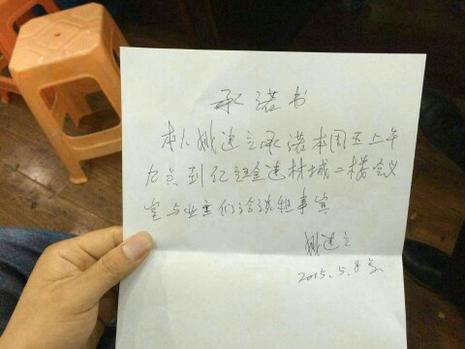 承诺书
本人姚建立承诺本周五上午
九点到红祖金建材城二楼会议
室与业主们洽谈租事宜
姚建立
2015.5.8号